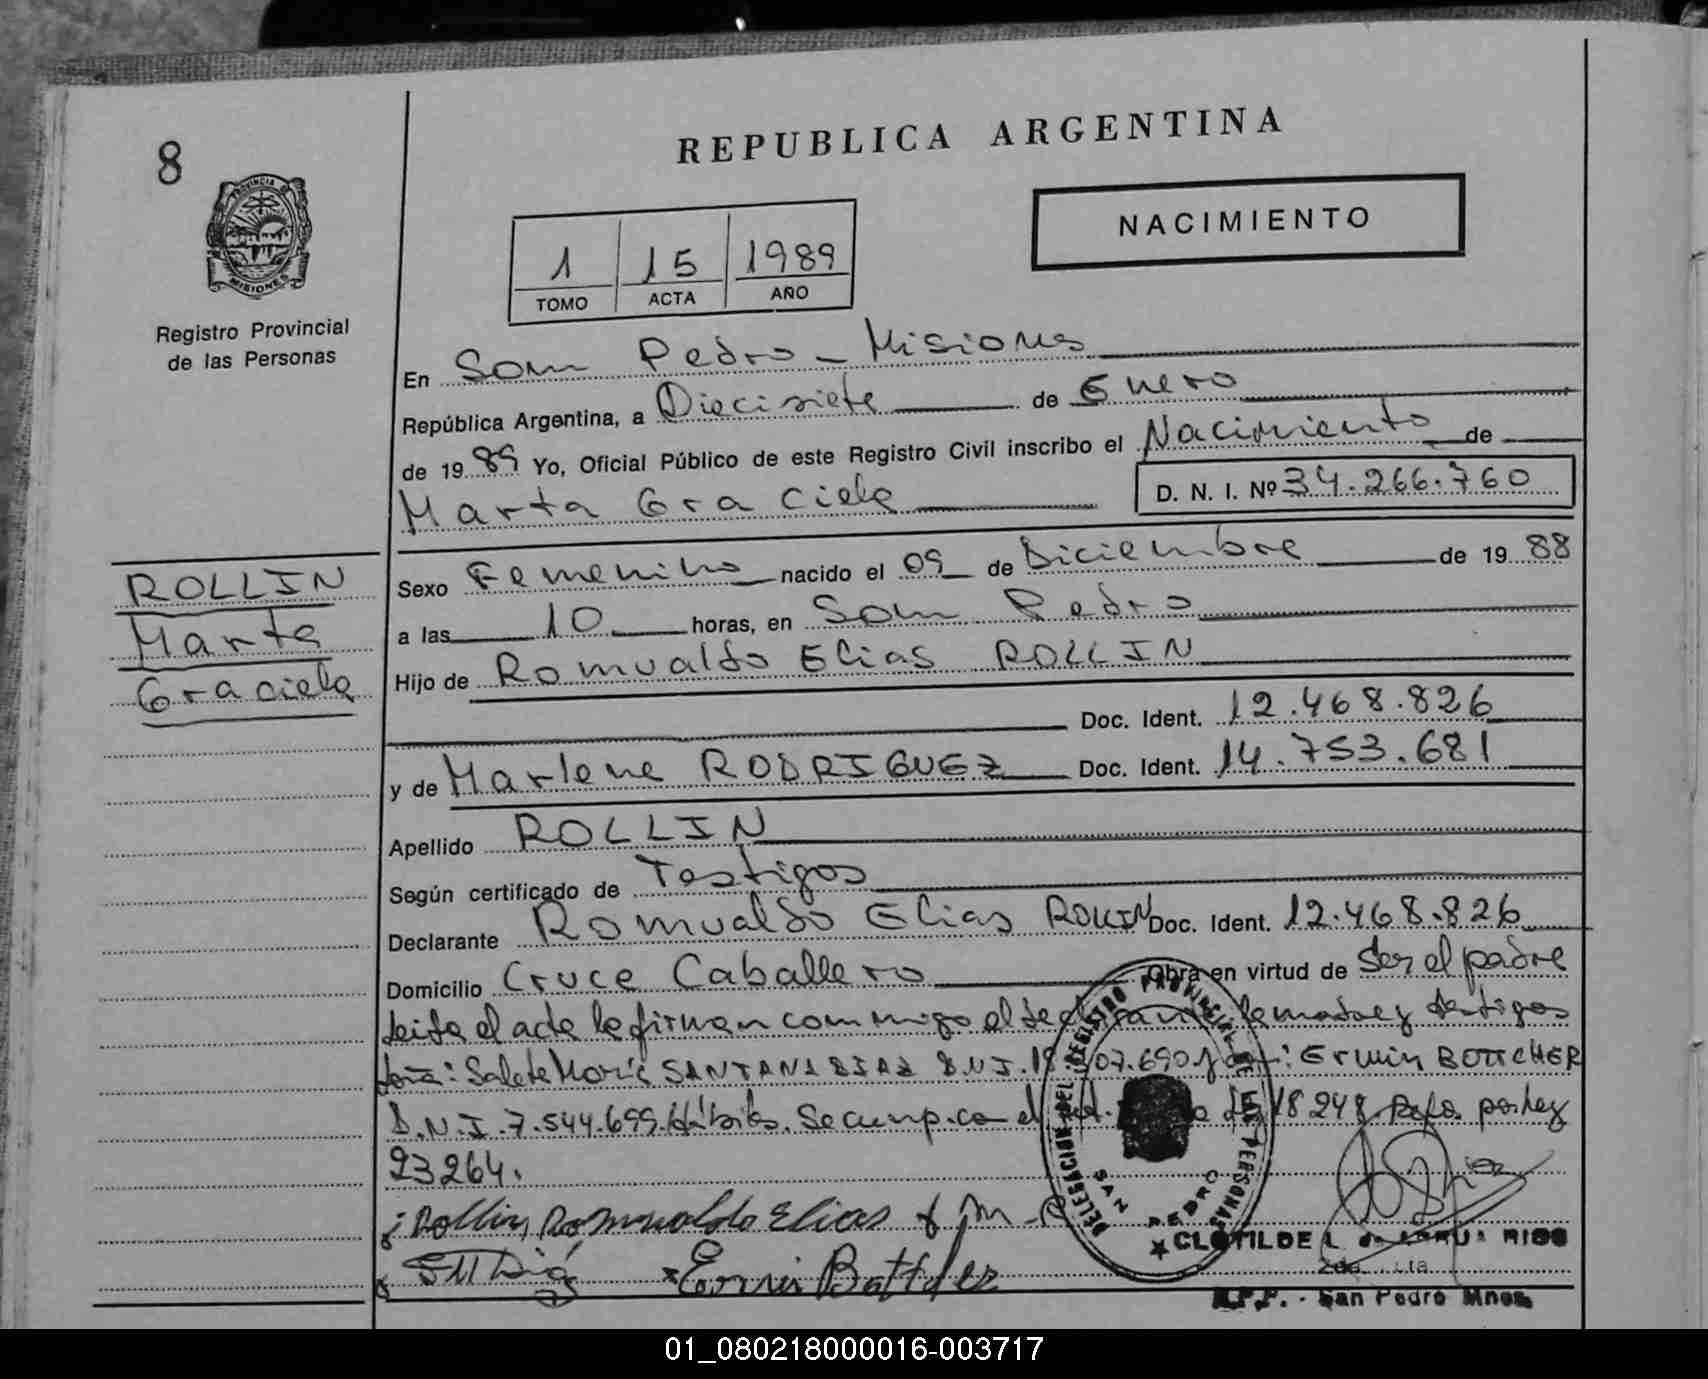 8
REPUBLICA ARGENTINA
PROVINCIA DE
MISIONES
NACIMIENTO
1 15 1989
TOMO ACTA AÑO
Registro Provincial
de las Personas
En San Pedro - Misiones
República Argentina, a Diecisiete de Enero
de 1989 Yo, Oficial Público de este Registro Civil inscribo el Nacimiento de
D. N. I. Nº 34.266.760
Marta Graciela
ROLLIN
Marta
Graciela
Sexo Femenino nacido el 09 de Diciembre de 1988
a las 10 horas, en San Pedro
Hijo de Romualdo Elias ROLLIN
Doc. Ident. 12.468.826
y de Marlene RODRIGUEZ Doc. Ident. 14.753.681
Apellido ROLLIN
Según certificado de Testigos
Declarante Romualdo Elias ROLLIN Doc. Ident. 12.468.826
Domicilio Cruce Caballero Obra en virtud de Ser el padre
leida el acta la firman conmigo el la madre y testigos
Salete SANTANA DIAZ D.N.I. Erwin BOTTCHER
D.N.I. 7.544.699. 18248 por ley
23264.
Rollin, Romualdo Elias
Erwin
DELEGACION DEL REGISTRO PROVINCIAL DE LAS PERSONAS
SAN PEDRO
CLOTILDE L
R.P.P. - San Pedro Mnes.
01_080218000016-003717